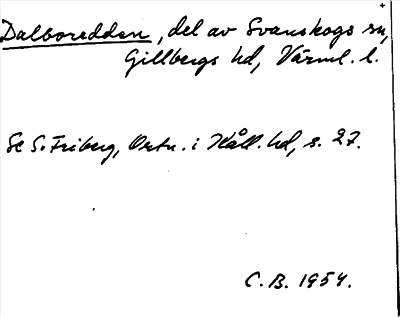 Dalboredden, del av Svanskogs sn,
Gillbergs hd, Värml. l.
Se S. Friberg, Ortn. i Kåll. hd, s. 27.
C. B. 1954.